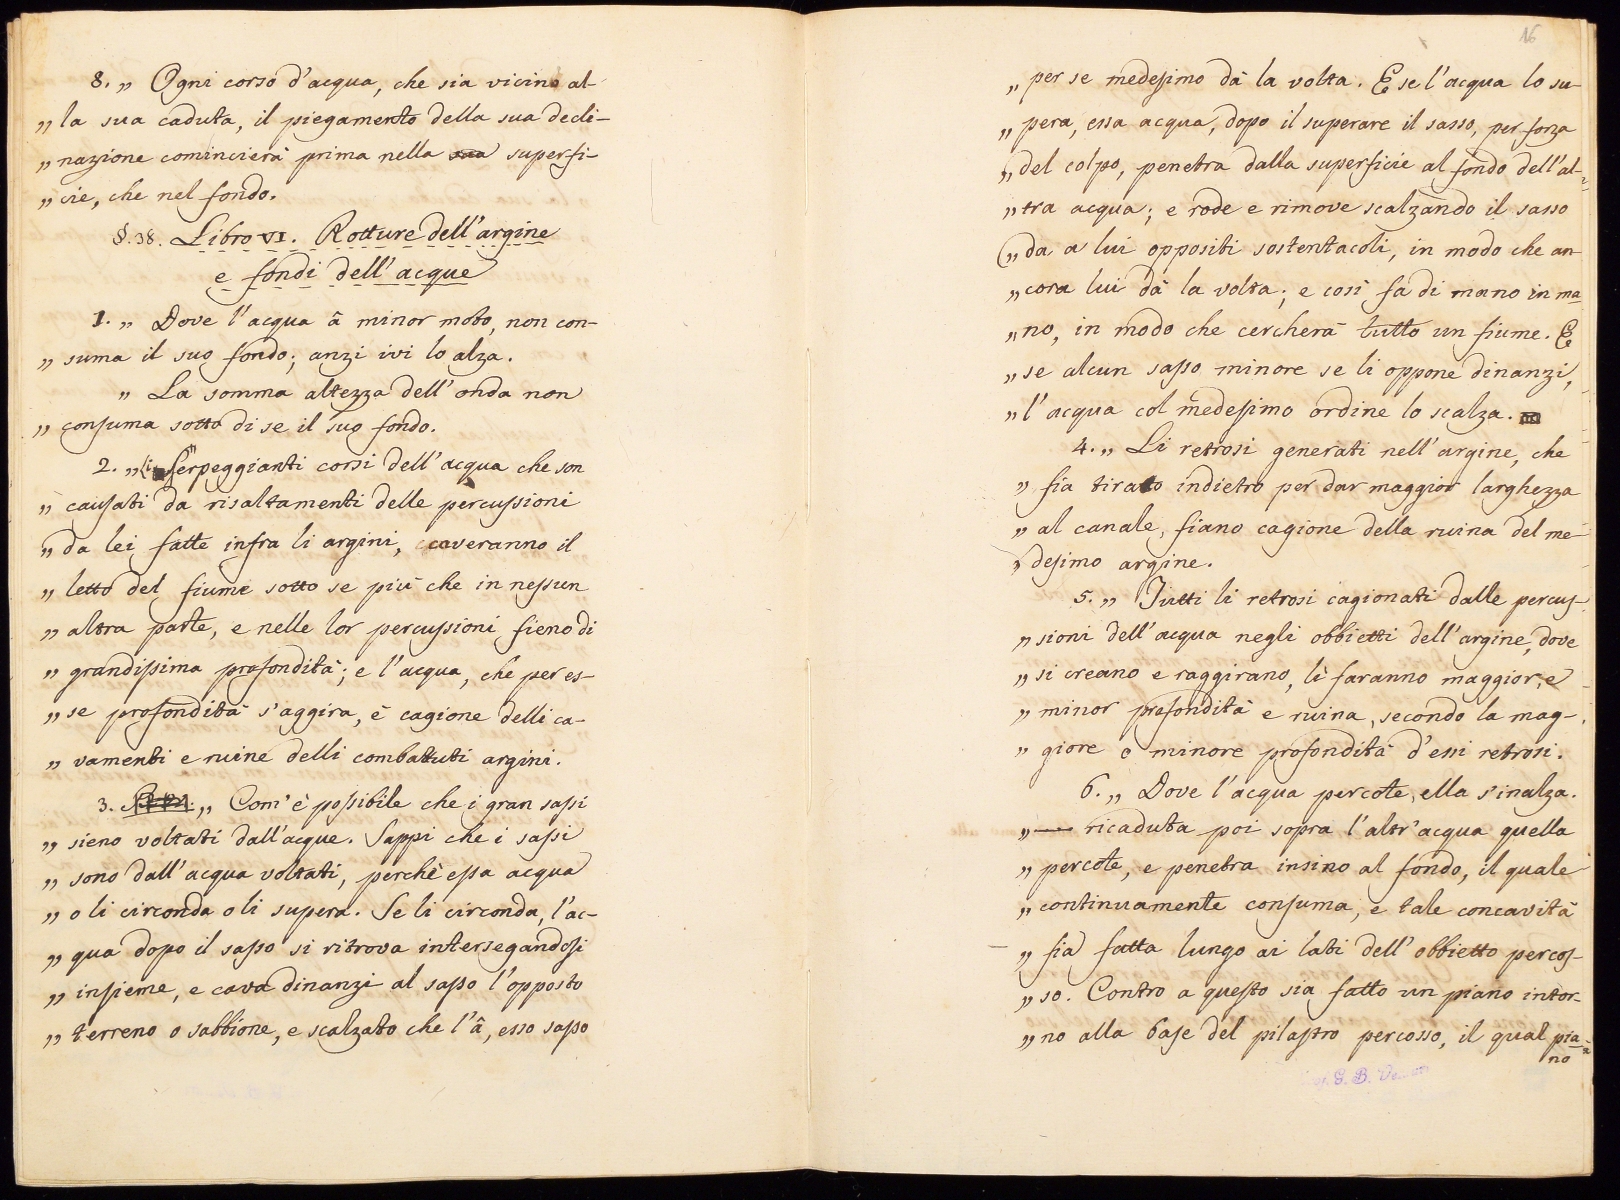 8. „ Ogni corso d'acqua, che sia vicino al-
„ la sua caduta, il piegamento della sua decli-
„ nazione comincierà prima nella sua superfi-
„ cie, che nel fondo.
§. 38. Libro VI. Rotture dell'argine
e fondi dell'acque
1. „ Dove l'acqua à minor moto, non con-
„ suma il suo fondo; anzi ivi lo alza.
„ La somma altezza dell'onda non
„ consuma sotto di se il suo fondo.
2. „ Li Serpeggianti corsi dell'acqua che son
„ causati da risaltamenti delle percussioni
„ da lei fatte infra li argini, caveranno il
„ letto del fiume sotto se più che in nessun
„ altra parte, e nelle lor percussioni fieno di
„ grandissima profondità; e l'acqua, che per es-
„ se profondità s'aggira, è cagione delli ca-
„ vamenti e ruine delli combattuti argini.
3. „ Com'è possibile che i gran sassi
„ sieno voltati dall'acque. Sappi che i sassi
„ sono dall'acqua voltati, perchè essa acqua
„ o li circonda o li supera. Se li circonda, l'ac-
„ qua dopo il sasso si ritrova intersegandosi
„ insieme, e cava dinanzi al sasso l'opposto
„ terreno o sabbione, e scalzato che l'â, esso sasso
16
„ per se medesimo dà la volta. E se l'acqua lo su-
„ pera, essa acqua, dopo il superare il sasso, per forza
„ del colpo, penetra dalla superficie al fondo dell'al-
„ tra acqua; e rode e rimove scalzando il sasso
„ da a lui oppositi sostentacoli, in modo che an-
„ cora lui dà la volta; e così fa di mano in ma
„ no, in modo che cercherà tutto un fiume. E
„ se alcun sasso minore se li oppone dinanzi,
„ l'acqua col medesimo ordine lo scalza.
4. „ Li retrosi generati nell'argine, che
„ sia tirato indietro per dar maggior larghezza
„ al canale, fiano cagione della ruina del me-
„ desimo argine.
5. „ Tutti li retrosi cagionati dalle percus-
„ sioni dell'acqua negli obbietti dell'argine, dove
„ si creano e raggirano, lì faranno maggior, e
„ minor profondità e ruina, secondo la mag-
„ giore o minore profondità d'essi retrosi.
6. „ Dove l'acqua percote, ella s'inalza.
„ ricaduta poi sopra l'altr'acqua quella
„ percote, e penetra insino al fondo, il quale
„ continuamente consuma, e tale concavità
„ fia fatta lungo ai lati dell'obbietto percos-
„ so. Contro a questo sia fatto un piano intor-
„ no alla base del pilastro percosso, il qual pia
no
G. B.